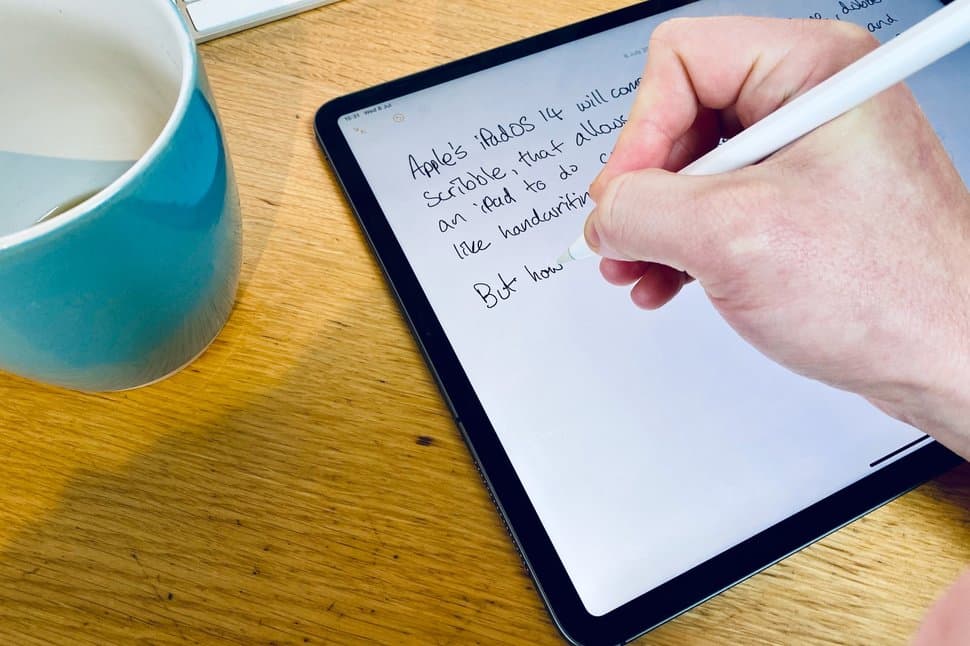 10:31 Wed 8 Jul
Apple's iPadOS 14 will
scribble, that allows
and
an iPad to do
like handwriting
But how